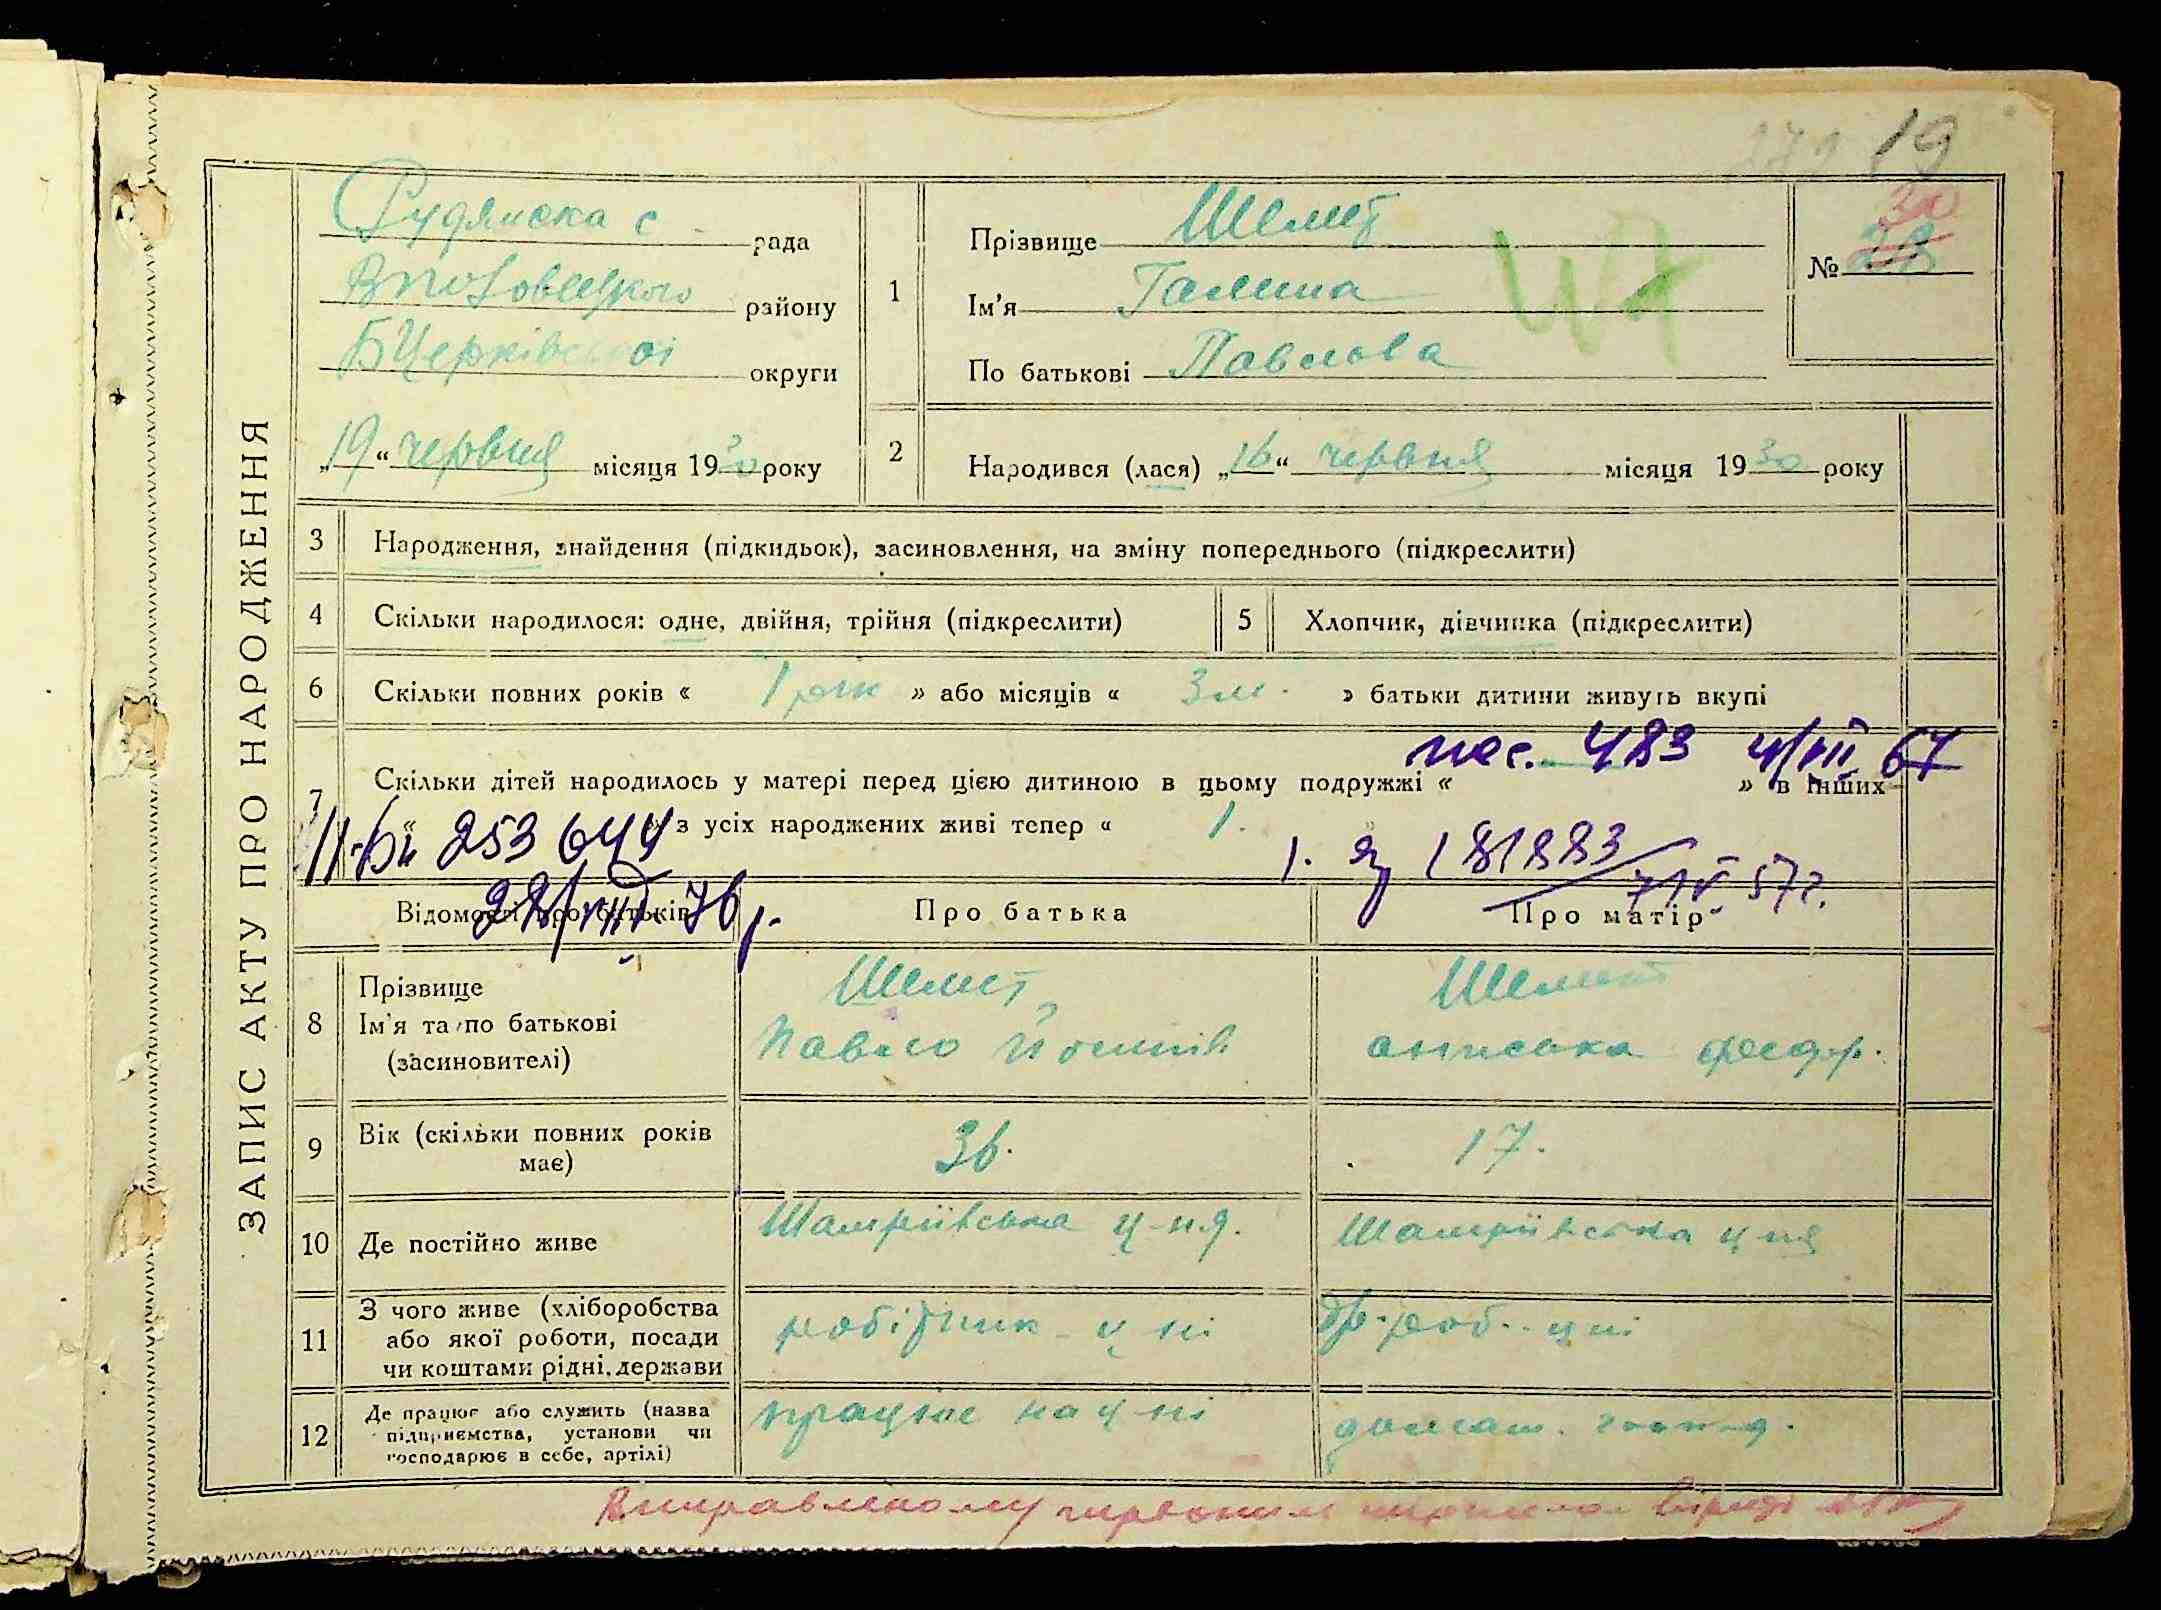 ЗАПИС АКТУ ПРО НАРОДЖЕННЯ
19
Рудянська с. рада
району
БЦерківської округи
„19“ червня місяця 1930 року
№ 30
1
Прізвище Шемет
Ім'я Галина
По батькові Павлова
2
Народився (лася) „16“ червня місяця 1930 року
3 Народження, знайдення (підкидьок), засиновлення, на зміну попереднього (підкреслити)
4 Скільки народилося: одне, двійня, трійня (підкреслити)
5 Хлопчик, дівчинка (підкреслити)
6 Скільки повних років « 1 рік » або місяців « 3 м. » батьки дитини живуть вкупі
пос. 483 4/VII 67
7 Скільки дітей народилось у матері перед цією дитиною в цьому подружжі « » в інших
« » з усіх народжених живі тепер « 1.
253644
1. 181883
57г.
76р.
Відомості про батьків
Про батька
Про матір
8 Прізвище
Ім'я та по батькові
(засиновителі)
Шемет
Павло Йосипів
Шемет
Аниська Федор.
9 Вік (скільки повних років
має)
36.
17.
10 Де постійно живе
Шамріївська ц-ня.
Шамріївська ц-ня
11 З чого живе (хліборобства
або якої роботи, посади
чи коштами рідні, держави
робітник ц-ні
роб. ц-ні
12 Де працює або служить (назва
підприємства, установи чи
господарює в себе, артілі)
працює на ц-ні
домаш.
Виправленому червоним чорнилом вірить